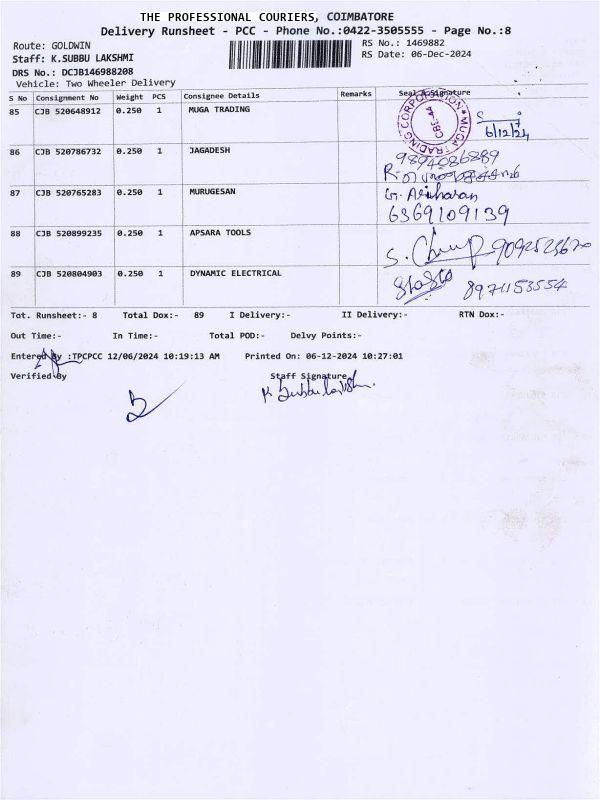 THE PROFESSIONAL COURIERS, COIMBATORE
Delivery Runsheet - PCC - Phone No.:0422-3505555 - Page No.:8
Route: GOLDWIN
RS No.: 1469882
Staff: K.SUBBU LAKSHMI
RS Date: 06-Dec-2024
DRS No.: DCJB146988208
Vehicle: Two Wheeler Delivery
S No Consignment No Weight PCS Consignee Details Remarks Seal & Signature
85 CJB 520648912 0.250 1 MUGA TRADING
MUGA TRADING CORPORATION CBE-44
6/12/24
86 CJB 520786732 0.250 1 JAGADESH
9894086889
87 CJB 520765283 0.250 1 MURUGESAN G. Ariharan
6369109139
88 CJB 520899235 0.250 1 APSARA TOOLS
89 CJB 520804903 0.250 1 DYNAMIC ELECTRICAL 8971153554
Tot. Runsheet:- 8 Total Dox:- 89 I Delivery:- II Delivery:- RTN Dox:-
Out Time:- In Time:- Total POD:- Delvy Points:-
Entered By :TPCPCC 12/06/2024 10:19:13 AM Printed On: 06-12-2024 10:27:01
Verified By Staff Signature
K Subbulakshmi